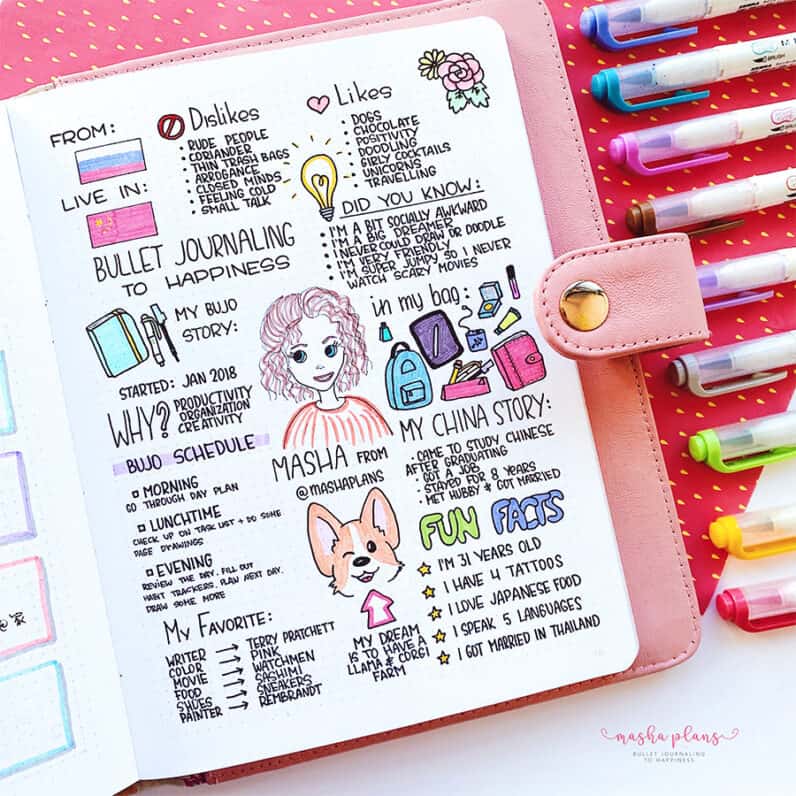 FROM:
LIVE IN:
Dislikes
• RUDE PEOPLE
• CORIANDER
• THIN TRASH BAGS
• ARROGANCE
• CLOSED MINDS
• FEELING COLD
• SMALL TALK
Likes
• DOGS
• CHOCOLATE
• POSITIVITY
• DOODLING
• GIRLY COCKTAILS
• UNICORNS
• TRAVELLING
DID YOU KNOW:
• I'M A BIT SOCIALLY AWKWARD
• I'M A BIG DREAMER
• I NEVER COULD DRAW OR DOODLE
• I'M VERY FRIENDLY
• I'M SUPER JUMPY, SO I NEVER
WATCH SCARY MOVIES
BULLET JOURNALING
TO HAPPINESS
MY BUJO
STORY:
STARTED: JAN 2018
WHY? PRODUCTIVITY
ORGANIZATION
CREATIVITY
in my bag:
BUJO SCHEDULE
MORNING
GO THROUGH DAY PLAN
LUNCHTIME
CHECK UP ON TASK LIST + DO SOME
PAGE DRAWINGS
EVENING
REVIEW THE DAY, FILL OUT
HABIT TRACKERS, PLAN NEXT DAY,
DRAW SOME MORE
MASHA FROM
@MASHAPLANS
MY CHINA STORY:
• CAME TO STUDY CHINESE
AFTER GRADUATING
• GOT A JOB
• STAYED FOR 8 YEARS
• MET HUBBY & GOT MARRIED
FUN FACTS
I'M 31 YEARS OLD
I HAVE 4 TATTOOS
I LOVE JAPANESE FOOD
I SPEAK 5 LANGUAGES
I GOT MARRIED IN THAILAND
My Favorite:
WRITER → TERRY PRATCHETT
COLOR → PINK
MOVIE → WATCHMEN
FOOD → SASHIMI
SHOES → SNEAKERS
PAINTER → REMBRANDT
MY DREAM
IS TO HAVE A
LLAMA & CORGI
FARM
masha plans
BULLET JOURNALING
TO HAPPINESS